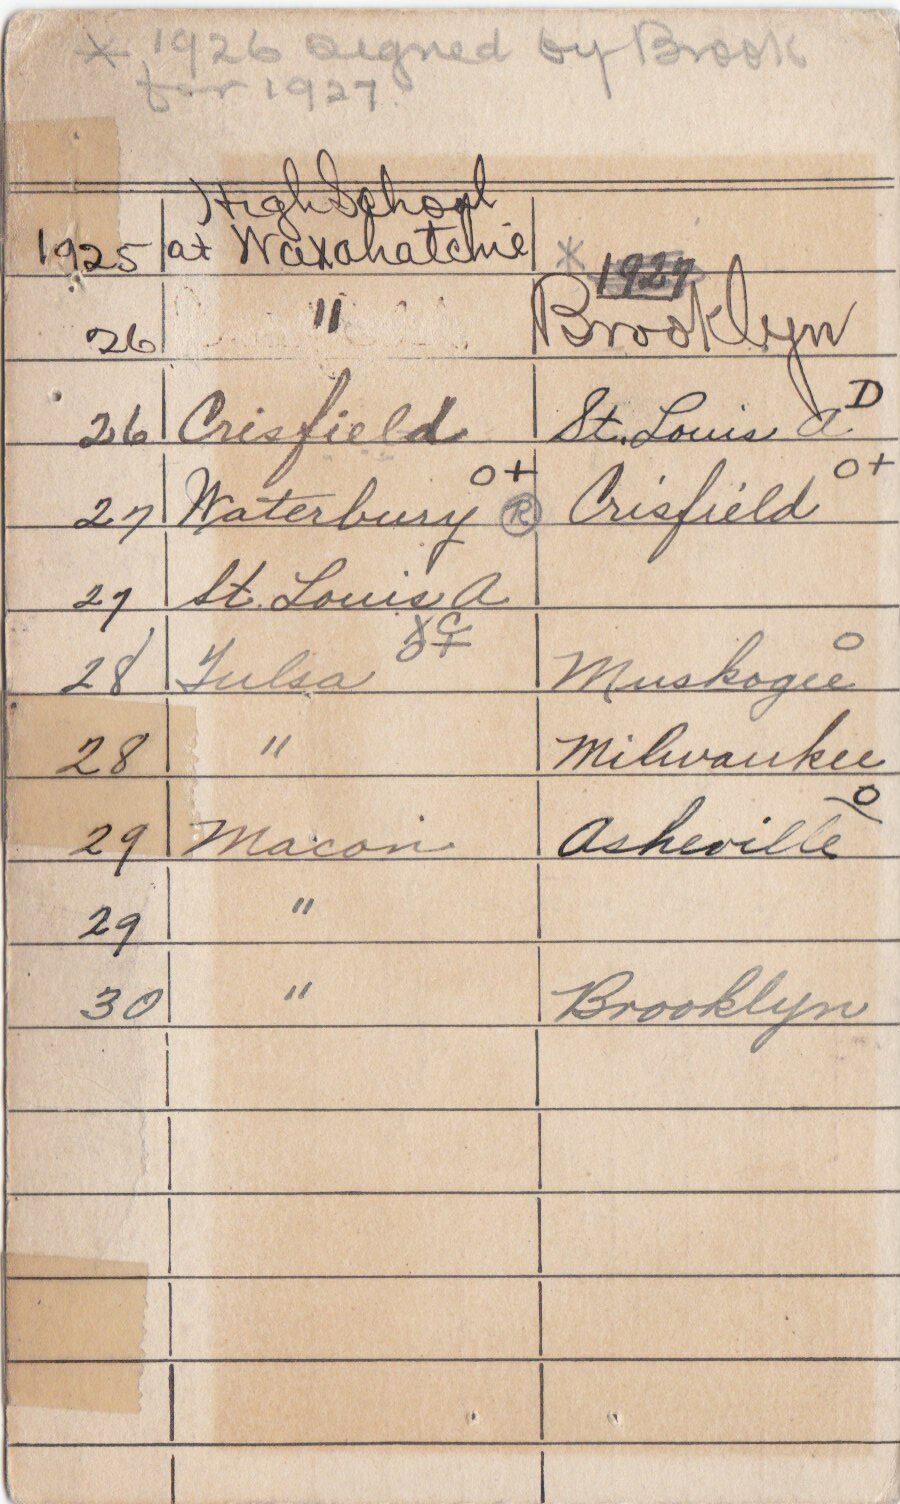 * 1926 signed by Brook
for 1927.
High School
1925 at Waxahatchie * 1927
26 " Brooklyn
26 Crisfield St. Louis A D
27 Waterbury O+ R Crisfield O+
27 St. Louis A
28 Tulsa Muskogee O
28 " Milwaukee
29 Macon Asheville O
29 "
30 " Brooklyn